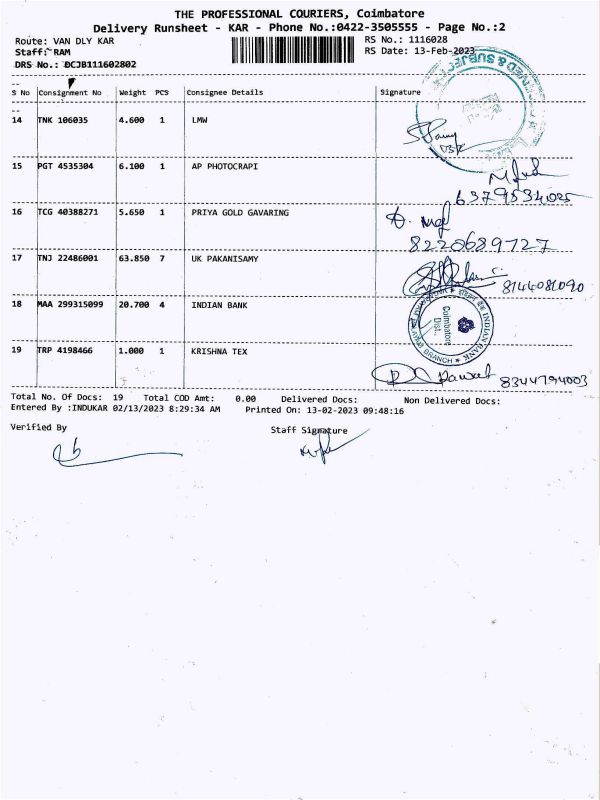 THE PROFESSIONAL COURIERS, Coimbatore
Delivery Runsheet - KAR - Phone No.:0422-3505555 - Page No.:2
Route: VAN DLY KAR RS No.: 1116028
Staff: RAM RS Date: 13-Feb-2023
DRS No.: DCJB111602802
S No Consignment No Weight PCS Consignee Details Signature
14 TNK 106035 4.600 1 LMW
15 PGT 4535304 6.100 1 AP PHOTOCRAPI
6379534025
16 TCG 40388271 5.650 1 PRIYA GOLD GAVARING
8220689727
17 TNJ 22486001 63.850 7 UK PAKANISAMY
8144081090
18 MAA 299315099 20.700 4 INDIAN BANK
INDIAN BANK
Coimbatore
Dist.
BRANCH
19 TRP 4198466 1.000 1 KRISHNA TEX
8344794003
Total No. Of Docs: 19 Total COD Amt: 0.00 Delivered Docs: Non Delivered Docs:
Entered By :INDUKAR 02/13/2023 8:29:34 AM Printed On: 13-02-2023 09:48:16
Verified By Staff Signature